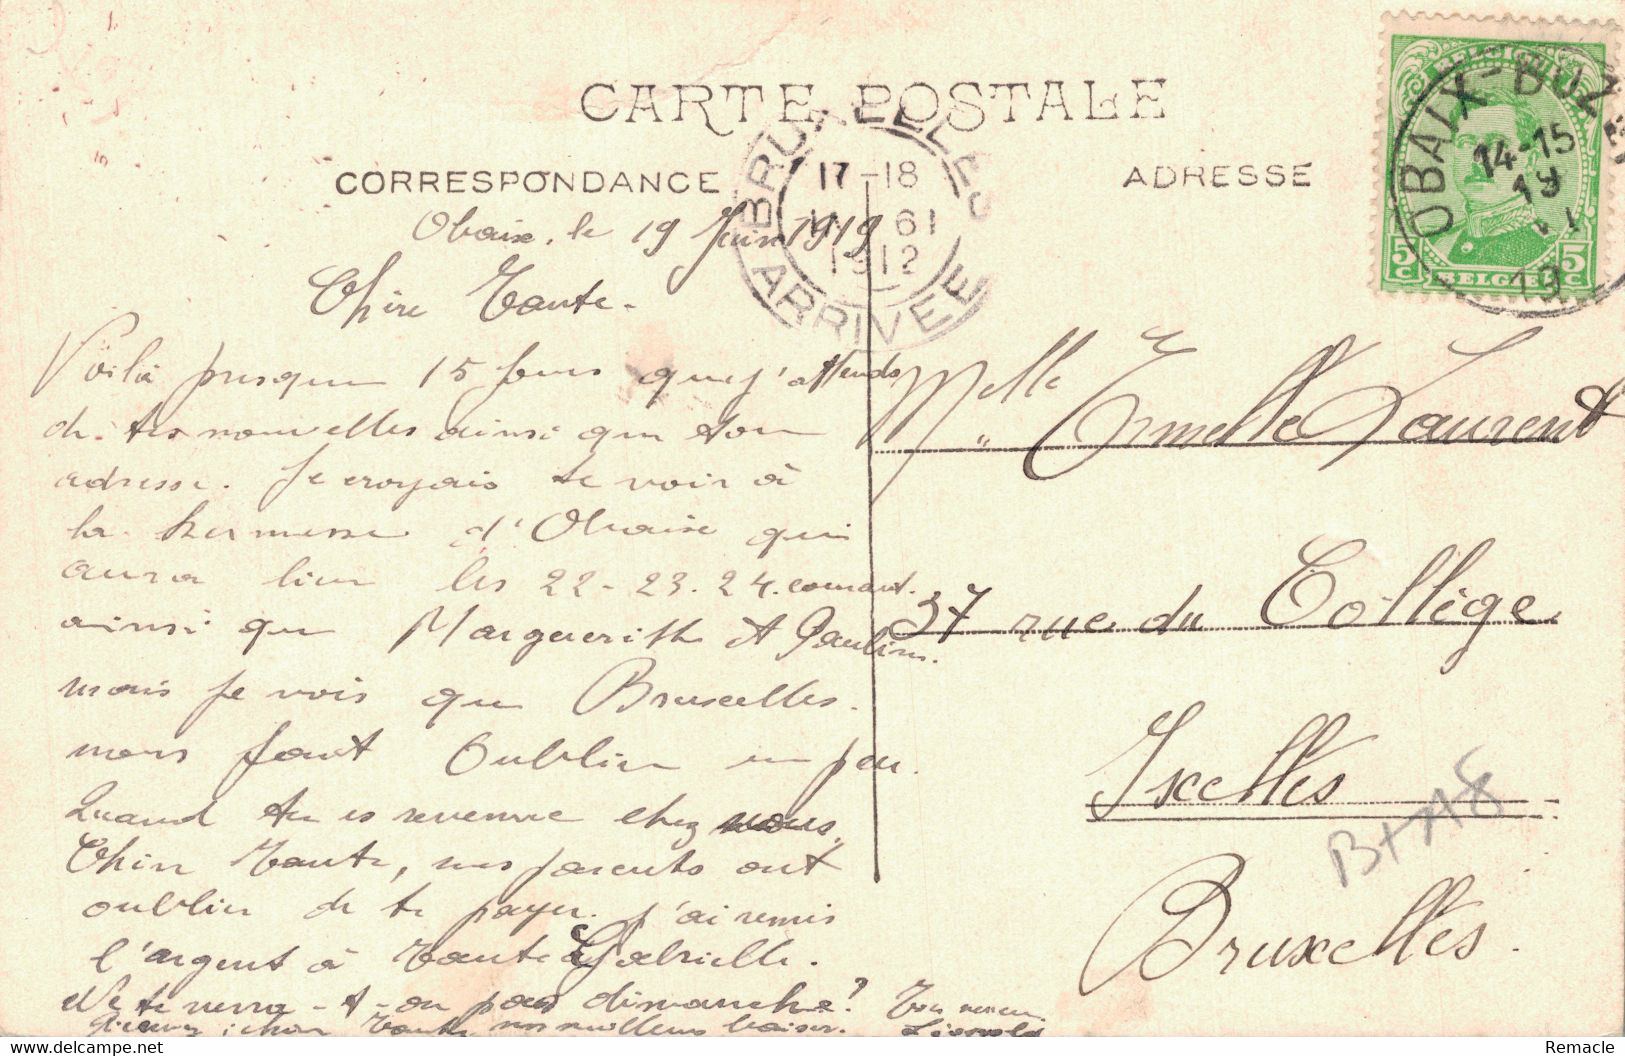 CARTE POSTALE
CORRESPONDANCE
ADRESSE
BRUXELLES
17-18
1912
ARRIVEE
OBAIX-BUZET
14-15
19
19
BELGIQUE
5c BELGIE 5c
Obaix, le 19 Juin 1919
Chère Tante.
Voilà presque 15 jours que j'attends
de tes nouvelles ainsi que ton
adresse. Je croyais te voir à
la kermesse d'Obaix qui
aura lieu les 22-23.24. courant.
ainsi que Marguerith et Pauline.
mais je vois que Bruxelles.
nous fait oublier un peu.
Quand tu es revenue chez nous,
Chère Tante, mes parents ont
oublier de te payer. j'ai remis
l'argent à Tante Gabrielle.
Ne te verra-t-on pas dimanche? Ton neveu
chère Tante, nos meilleurs baiser. Léopold
Melle Ermelle Laurent
37 rue du Collège
Ixelles
Bruxelles.
Remacle